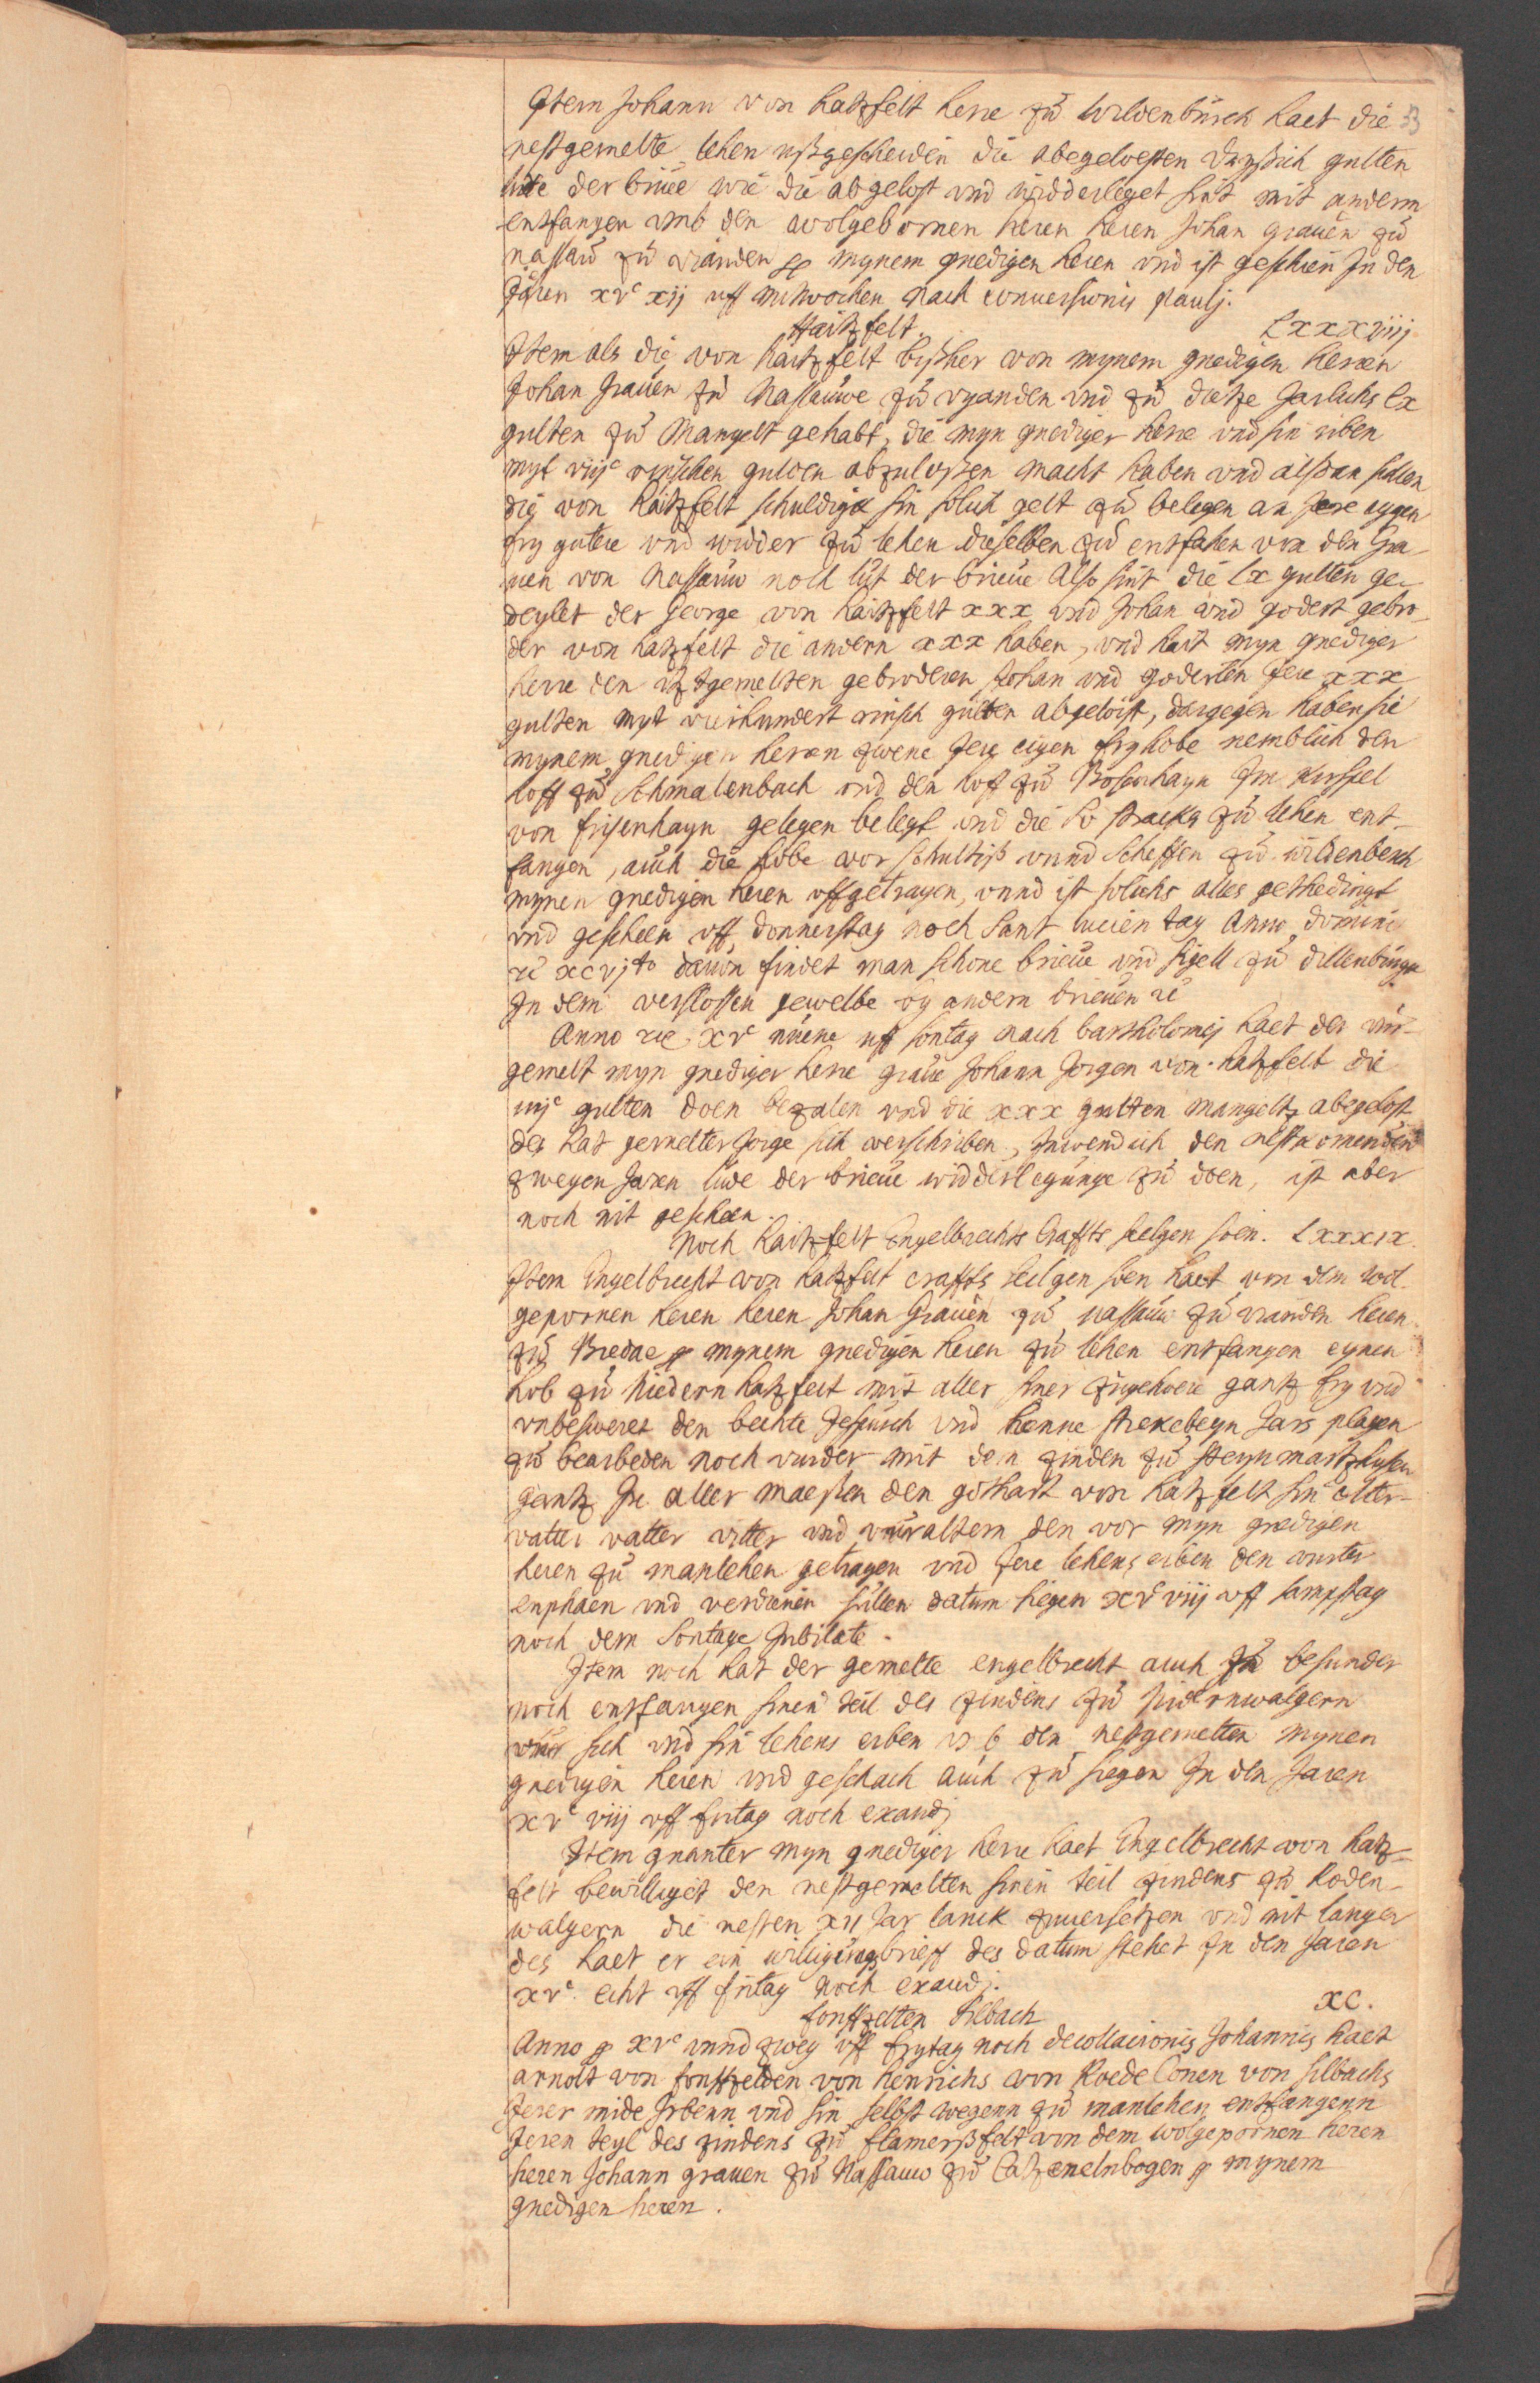 Item Johann von Hatzfelt Herre zů Wildenbůrch haet die 33
nestgemelte lehen ußgescheiden die abegeloesten dryßich gulten
lute der briůe wie die abgelost vnd widderleget sint mit anderm
entfangen vmb den wolgebornen heren heren Johan graůen zů
nassaw zů vianden ꝛc mynem gnedigen heren vnd ist geschein In den
Jaren xvᶜ xij uff mitwochen nach conuersionis paulj.
Haitzfelt. Lxxxviij
Item als die von Haitzfelt bißher von mynem gnedigen herren
Johan Grauen zů Nassaůwe zů vyanden vnd zů dietze Jarlichs Lx
gulten zů Mangelt gehabt, die myn gnediger herre vnd sin erben
myt viijᶜ rynschen gulden abzulossen macht haben vnd alßdan sollen
die von Haitzfelt schuldigk sin solich gelt zů belegen an Jere eygen
fry gutere vnd widder zů lehen dieselben zů entfahen von den Gra-
uen von Nassaůw noch lůt der brieue Also sint die Lx gulten ge-
deylet der George von Haitzfelt xxx vnd Johan vnd godert gebro-
der von Hatzfelt die andern xxx haben, vnd hait myn gnediger
herre den itztgemelten gebroderen Johan vnd goderten Jere xxx
gulten myt vierhundert rinsch gulden abgeloist, dargegen haben sie
mynem gnedigen herren zwene Jere eigen fryhobe nemblich den
hoff zů Schmalenbach vnd den hoff zů Boserhayn Im kirspel
von frisenhagn gelegen belegt vnd die so stracks zů lehen ent-
fangen, auch die hobe vor schultiß vnnd scheffen zů wildenberch
mynen gnedigen heren uffgetragen, vnnd ist solichs alles gethedingt
vnd gescheen uff donnerstag noch Sant lucien tag Anno domini
ꝛc xcvjᵗᵒ dauon findet man schone brieůe vnd sigell zů dillenburgk
In dem verslossen gewelbe by andern brieuen ꝛc
Anno ꝛc xvᶜ nůene uff sontag nach bartholomej haet der vur-
gemelt myn gnediger herre graue Johann Jorgen von Hatzfelt die
iiijᶜ gulten doen bezalen vnd die xxx gulten mangeltz abegelost
des hat gemelter Jorge sich verschriben, Inwendich den nestkomenden
zweyen Jaren lude der brieue widderlegunge zů doen, ist aber
noch nit gescheen.
Noch Haitzfelt Engelbrechts Craffts seelgen soen. Lxxxix.
Item Engelbrecht von Hatzfelt craffts seelgen soen haet von dem wol
gepornen heren heren Johan Graůen zů nassaůw zů vianden heren
zů Bredae ꝛc mynem gnedigen heren zů lehen entfangen eynen
hob zů Niedern Hatzfelt mit aller siner zugehoere gantz fry vnd
vnbesweret den bechte Jespusch vnd Henne strekebeyn Jars plagen
zů bearbeden noch vurder mit dem zinden zů steynmartzhusen
gantz In aller maessen den gothart von Hatzfelt sin alter-
vatter vatter vetter vnd vuraltern den vor myn gnedigen
heren zů manlehen getragen vnd Jere lehens erben den vurter
enphaen vnd verdienen sullen datum siegen xvᶜ viij uff sampstag
noch dem Sontage Jubilate.
Item noch hat der gemelte engelbrecht auch zů besunder
noch entfangen sinen teil des zindens zů Niddernwalgern
vůr sich vnd sin lehens erben v b den nestgemelten mynen
gnedigen heren vnd geschach auch zů siegen In den Jaren
xvᶜ viij uff fritag noch exaudj
Item gnanter myn gnediger herre haet Engelbrecht von Hatz-
felt bewilliget den nestgemelten sinen teil zindens zů Roden-
walgern die nesten xij Jar lanck zuuersetzen vnd nit langer
des haet er ein willigungsbrieff des datum stehet In den Jaren
xvᶜ. echt uff fritag noch exaudj.
fonffzelten Selbach xc.
Anno ꝛc xvᶜ vnnd zwey uff frytag noch decollacionis Johannis haet
arnolt von fonffzelden von henrichs von Roede Conen von selbachs
Jerer mide Irbenn vnd sin selbst wegenn zů manlehen entfangenn
Jeren teyl des zindens zů flamerßfelt von dem wolgepornen heren
heren Johann grauen zů Nassauw zů Catzenelnbogen ꝛc mynem
gnedigen heren.